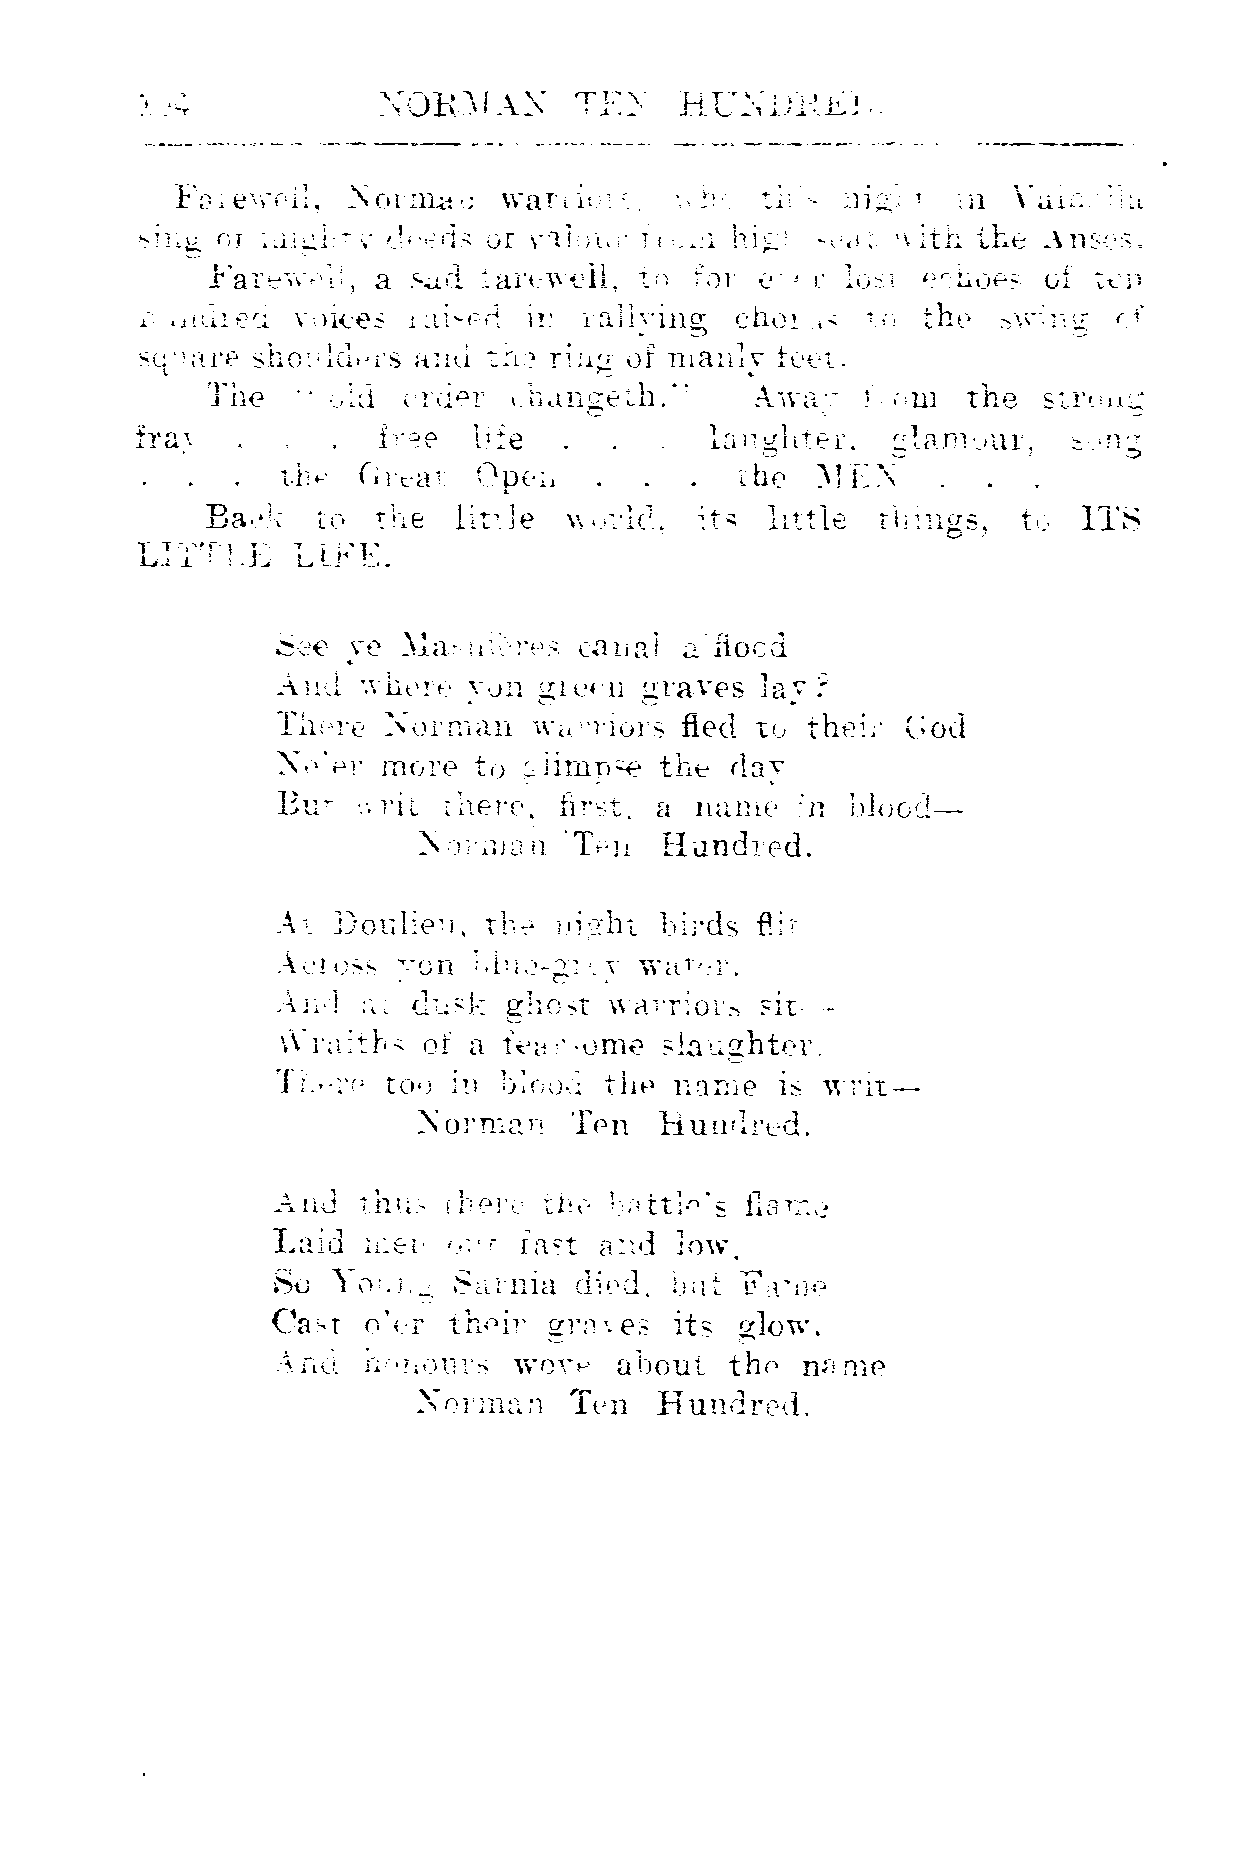 NORMAN TEN HUNDRED.
Farewell, Norman warriors, who this night in Valhalla
sing of mighty deeds of valour from high seat with the Anses.
Farewell, a sad farewell, to for ever lost echoes of ten
hundred voices raised in rallying chorus to the swing of
square shoulders and the ring of manly feet.
The " old order changeth." Away from the strong
fray . . . free life . . . laughter, glamour, song
. . . the Great Open . . . the MEN . . .
Back to the little world, its little things, to ITS
LITTLE LIFE.
See ye Masnières canal a'flood
And where yon green graves lay?
There Norman warriors fled to their God
Ne'er more to glimpse the day
But writ there, first, a name in blood—
Norman Ten Hundred.
At Doulieu, the night birds flit
Across yon blue-grey water.
And at dusk ghost warriors sit—
Wraiths of a fearsome slaughter.
There too in blood the name is writ—
Norman Ten Hundred.
And thus there the battle's flame
Laid men out fast and low.
So Young Sarnia died, but Fame
Cast o'er their graves its glow.
And honours wove about the name
Norman Ten Hundred.